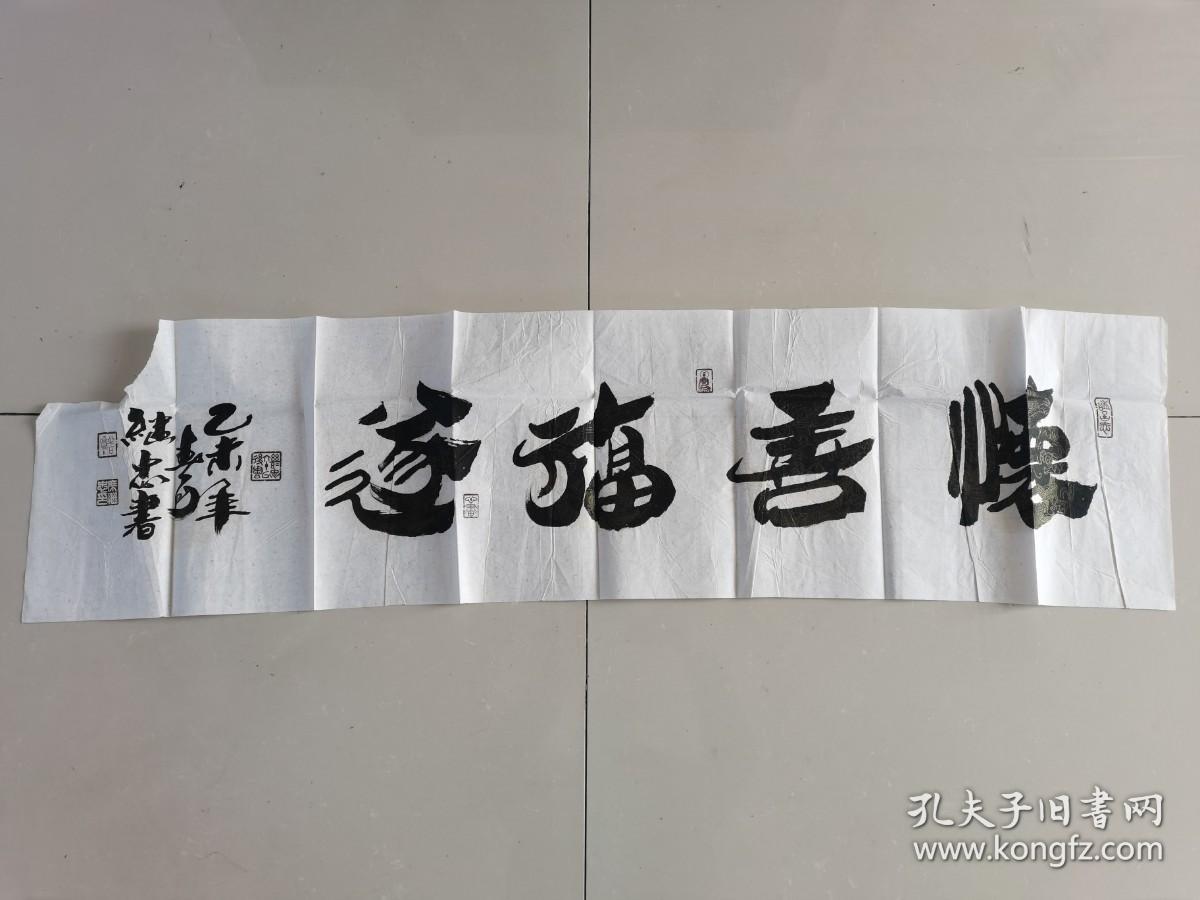 懷善福逐
乙未年
春月
継忠書
孔夫子旧书网
www.kongfz.com